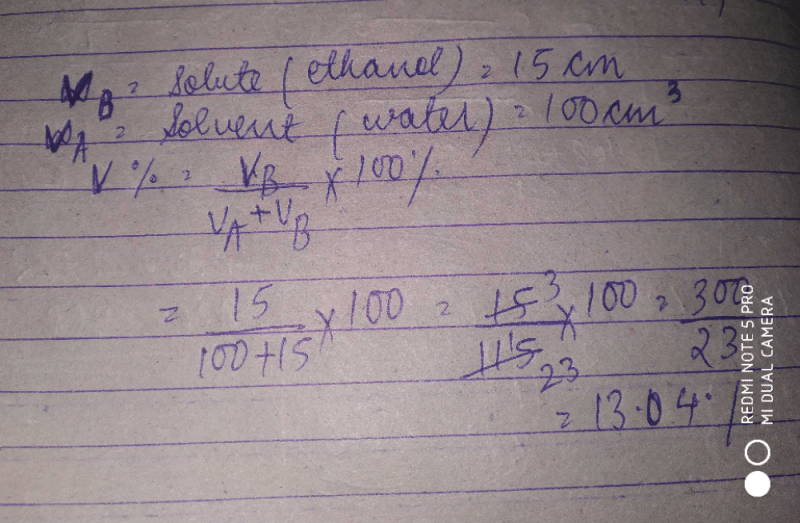 V_B = Solute (ethanol) = 15 cm
V_A = Solvent (water) = 100 cm³
V % = V_B / (V_A + V_B) × 100%.
= 15 / (100+15) × 100 = 15 3 / 115 23 × 100 = 300 / 23
= 13.04%
REDMI NOTE 5 PRO
MI DUAL CAMERA